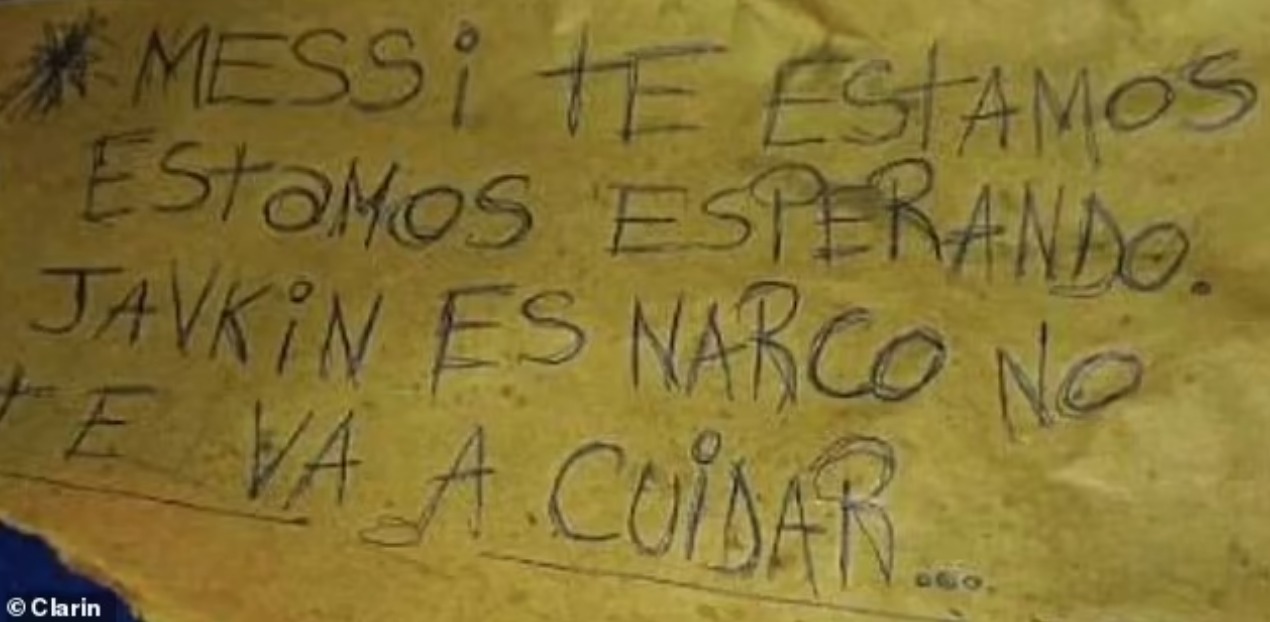 *MESSi tE EStAMOS
EStaMOS ESPERANDO.
JAVKiN ES NARCO NO
tE VA A CUiDAR....
© Clarin